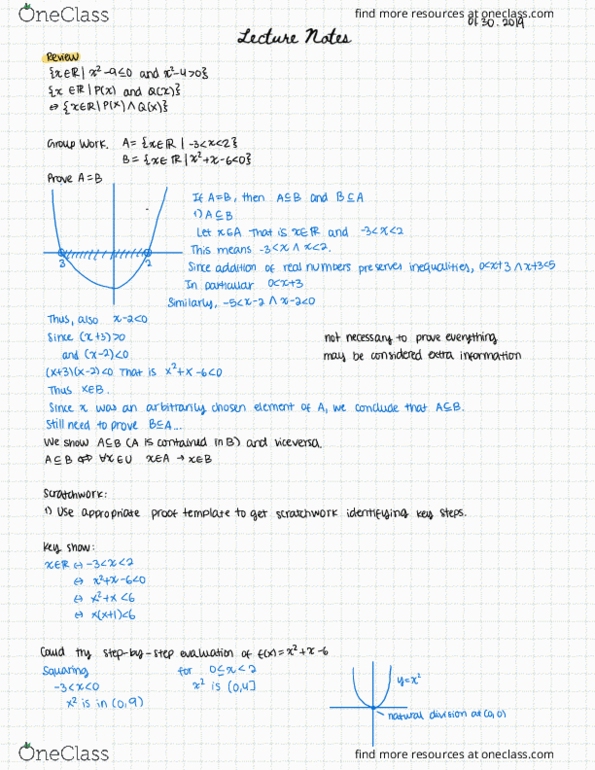 OneClass
find more resources at oneclass.com
01.30.2019
Lecture Notes
Review
{x∈ℝ | x²-9≤0 and x²-4>0}
{x ∈ℝ | P(x) and Q(x)}
⇔ {x∈ℝ | P(x) ∧ Q(x)}
Group Work. A = {x∈ℝ | -3<x<2}
B = {x∈ℝ | x²+x-6<0}
Prove A=B
If A=B, then A⊆B and B⊆A
1) A⊆B
Let x∈A That is x∈ℝ and -3<x<2
This means -3<x ∧ x<2.
Since addition of real numbers preserves inequalities, 0<x+3 ∧ x+3<5
In particular 0<x+3
Similarly, -5<x-2 ∧ x-2<0
3 2
Thus, also x-2<0
Since (x+3)>0
and (x-2)<0
(x+3)(x-2)<0 That is x²+x-6<0
Thus x∈B.
not necessary to prove everything
may be considered extra information
Since x was an arbitrarily chosen element of A, we conclude that A⊆B.
Still need to prove B⊆A...
We show A⊆B (A is contained in B) and viceversa.
A⊆B ⇔ ∀x∈U x∈A → x∈B
Scratchwork:
1) Use appropriate proof template to get scratchwork identifying key steps.
Key show:
x∈ℝ ↔ -3<x<2
⇔ x²+x-6<0
⇔ x²+x<6
⇔ x(x+1)<6
Could try step-by-step evaluation of f(x)=x²+x-6
Squaring
-3<x<0
x² is in (0,9)
for 0≤x<2
x² is (0,4]
y=x²
natural division at (0,0)
OneClass
find more resources at oneclass.com